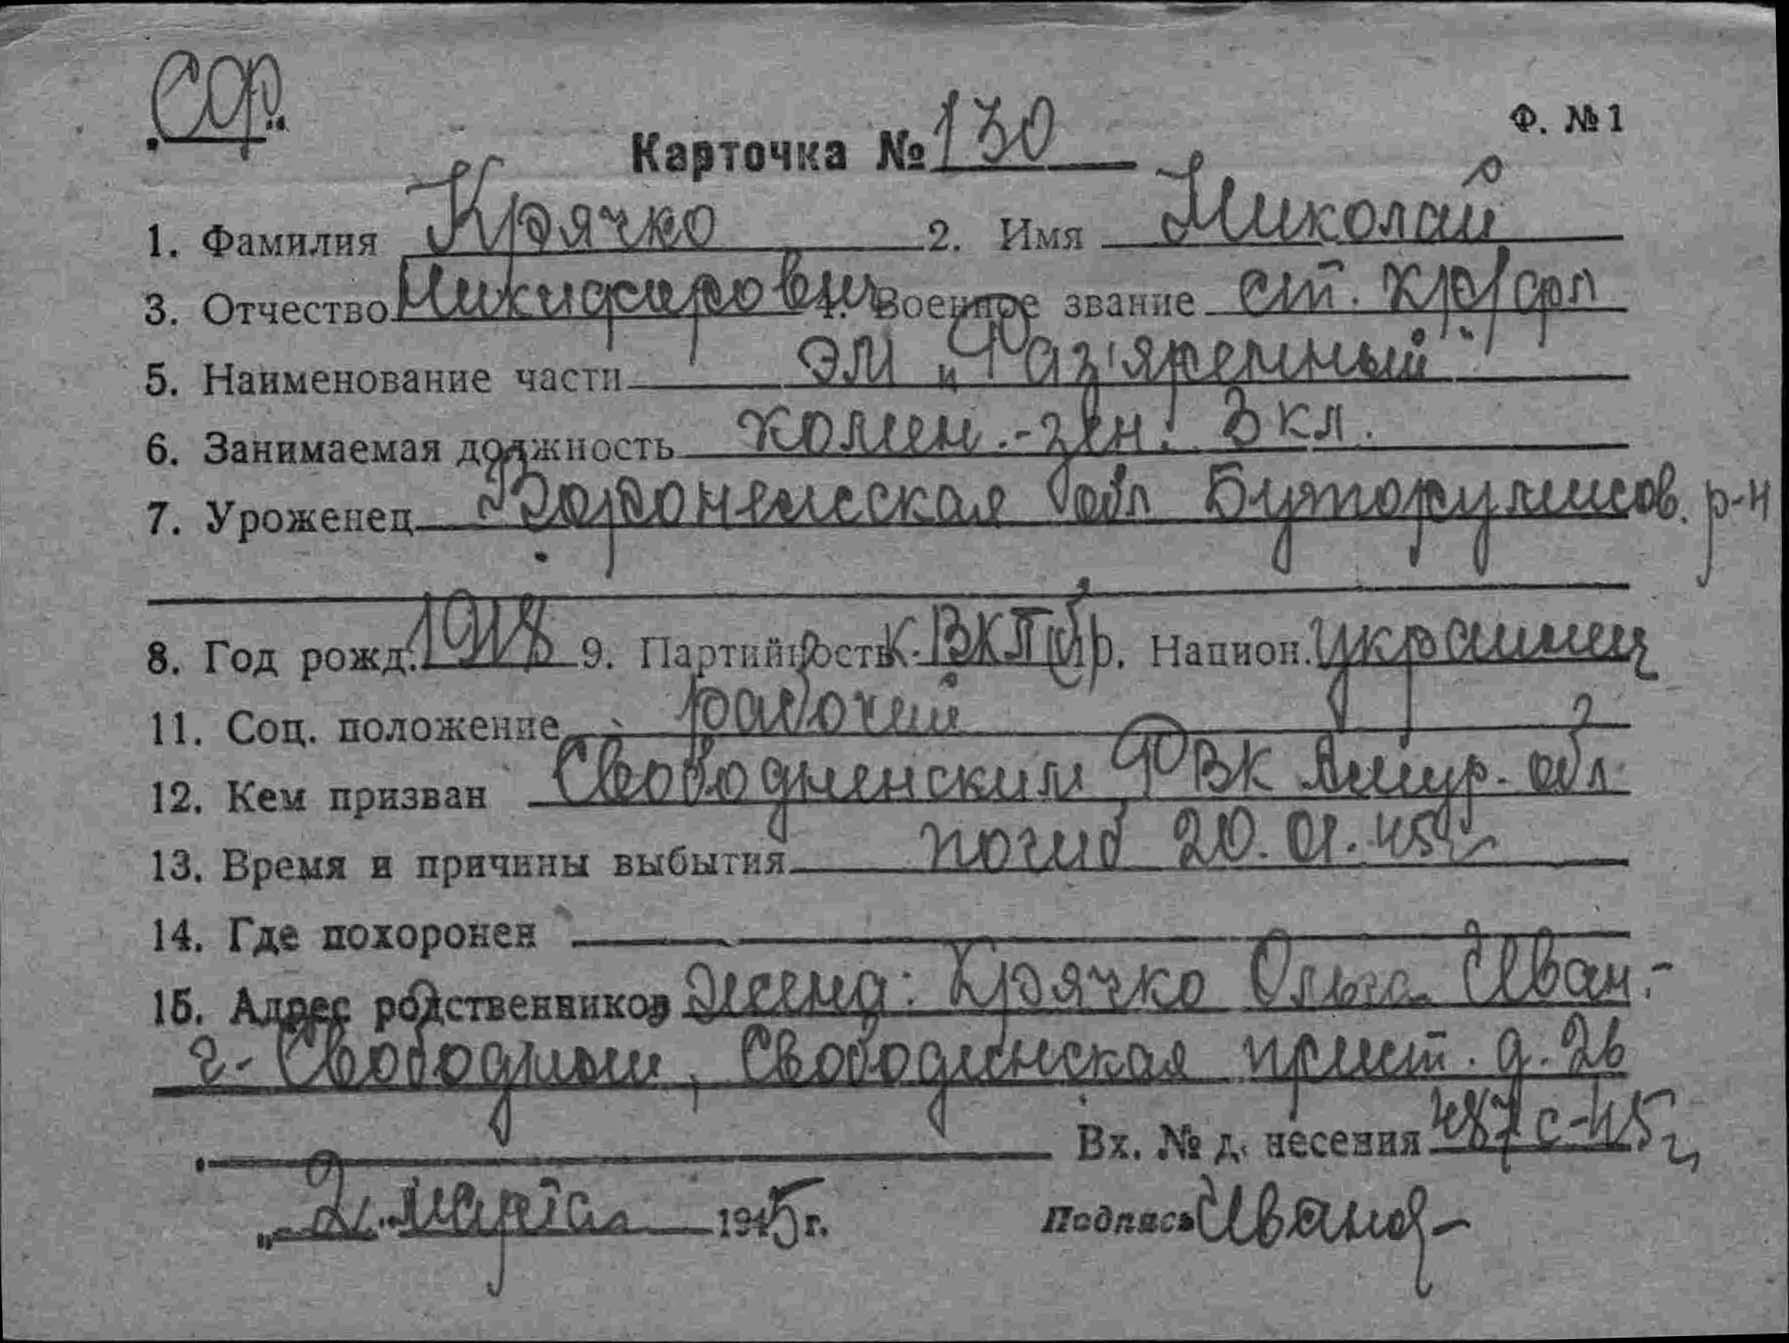 СФ.
Ф. №1
Карточка № 130
1. Фамилия Крячко 2. Имя Николай
3. Отчество Никифорович 4. Военное звание ст. кр/фл
5. Наименование части ЭМ „Разъяренный"
6. Занимаемая должность комен.-зен. 3 кл.
7. Уроженец Воронежская обл Бутурлинов. р-н
8. Год рожд. 1918 9. Партийность к. ВКП(б) р. Национ. украинец
11. Соц. положение рабочий
12. Кем призван Свободненским РВК Амур. обл
13. Время и причины выбытия погиб 20.01.45г
14. Где похоронен
15. Адрес родственников жена: Крячко Ольга Иван.-
г. Свободный, Свободинская прист. д. 26
Вх. № донесения 487с-45г
„2" марта 1945 г. Подпись